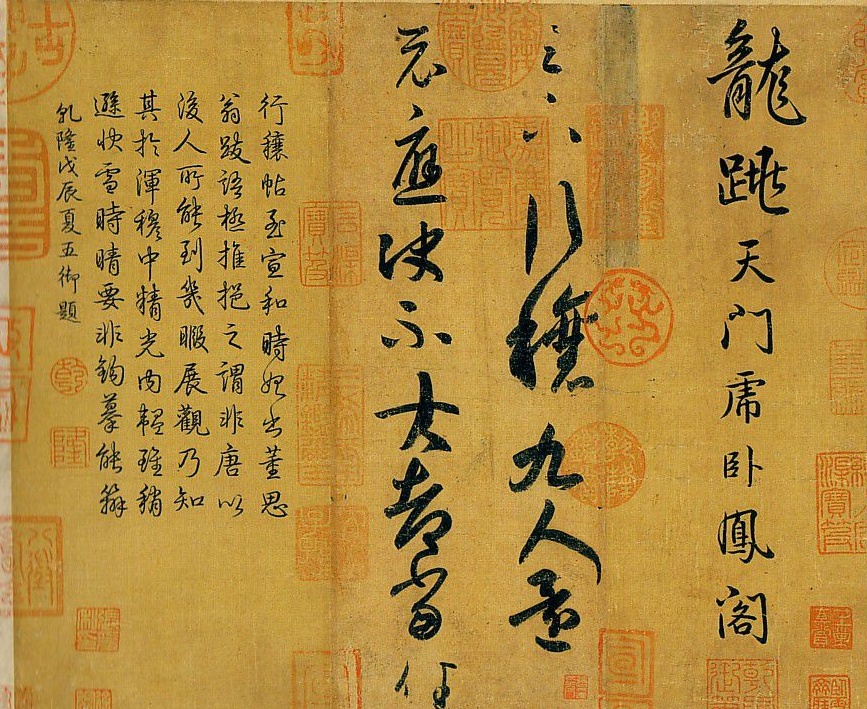 龍跳天門虎卧鳳閣
足下行穰九人還
示應決不大都當佳
行穰帖至宣和時始出董思
翁跋語極推挹之謂非唐以
後人所能到幾暇展觀乃知
其於渾穆中精光内韞雖稍
遜快雪時晴要非鉤摹能辦
乾隆戊辰夏五御題
乾
隆